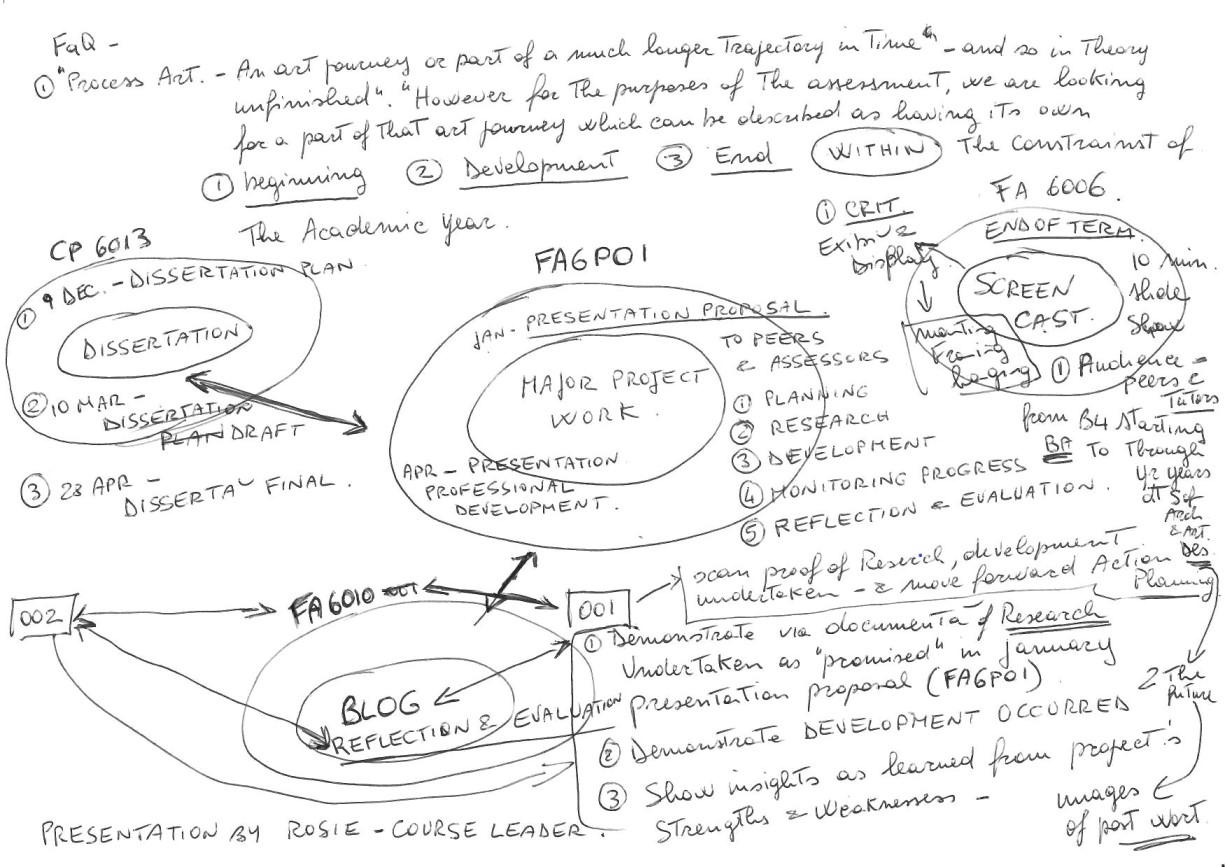 FaQ -
① "Process Art. - An art journey or part of a much longer Trajectory in Time" - and so in Theory
unfinished". "However for The purposes of The assessment, we are looking
for a part of That art journey which can be described as having iTs own
① beginning ② Development ③ End WITHIN The constrainst of
The Academic year.
CP 6013
① 9 DEC. - DISSERTATION PLAN.
DISSERTATION
② 10 MAR -
DISSERTATION
PLAN DRAFT
③ 28 APR -
DISSERTA FINAL.
FA6PO1
JAN - PRESENTATION PROPOSAL.
TO PEERS
& ASSESSORS
MAJOR PROJECT
WORK.
① PLANNING
② RESEARCH
③ DEVELOPMENT
④ MONITORING PROGRESS
⑤ REFLECTION & EVALUATION.
APR - PRESENTATION
PROFESSIONAL
DEVELOPMENT.
FA 6006.
END OF TERM.
① CRIT.
Display.
SCREEN
CAST.
10 min.
slide
Show
① Audience -
peers &
Tutors
from B4 starting
BA To Through
yr years
at
Arch
& Art.
Des
2 The
future
images
of past work.
002
FA6010 OCT
001
scan proof of Reserch, development
undertaken - & move forward Action
Planning
① Demonstrate via documenta of Research
Undertaken as "promised" in january
presentation proposal (FA6PO1).
② Demonstrate DEVELOPMENT OCCURRED
③ Show insights as learned from project's
Strengths & Weaknesses -
BLOG
REFLECTION & EVALUATION
PRESENTATION BY ROSIE - COURSE LEADER.